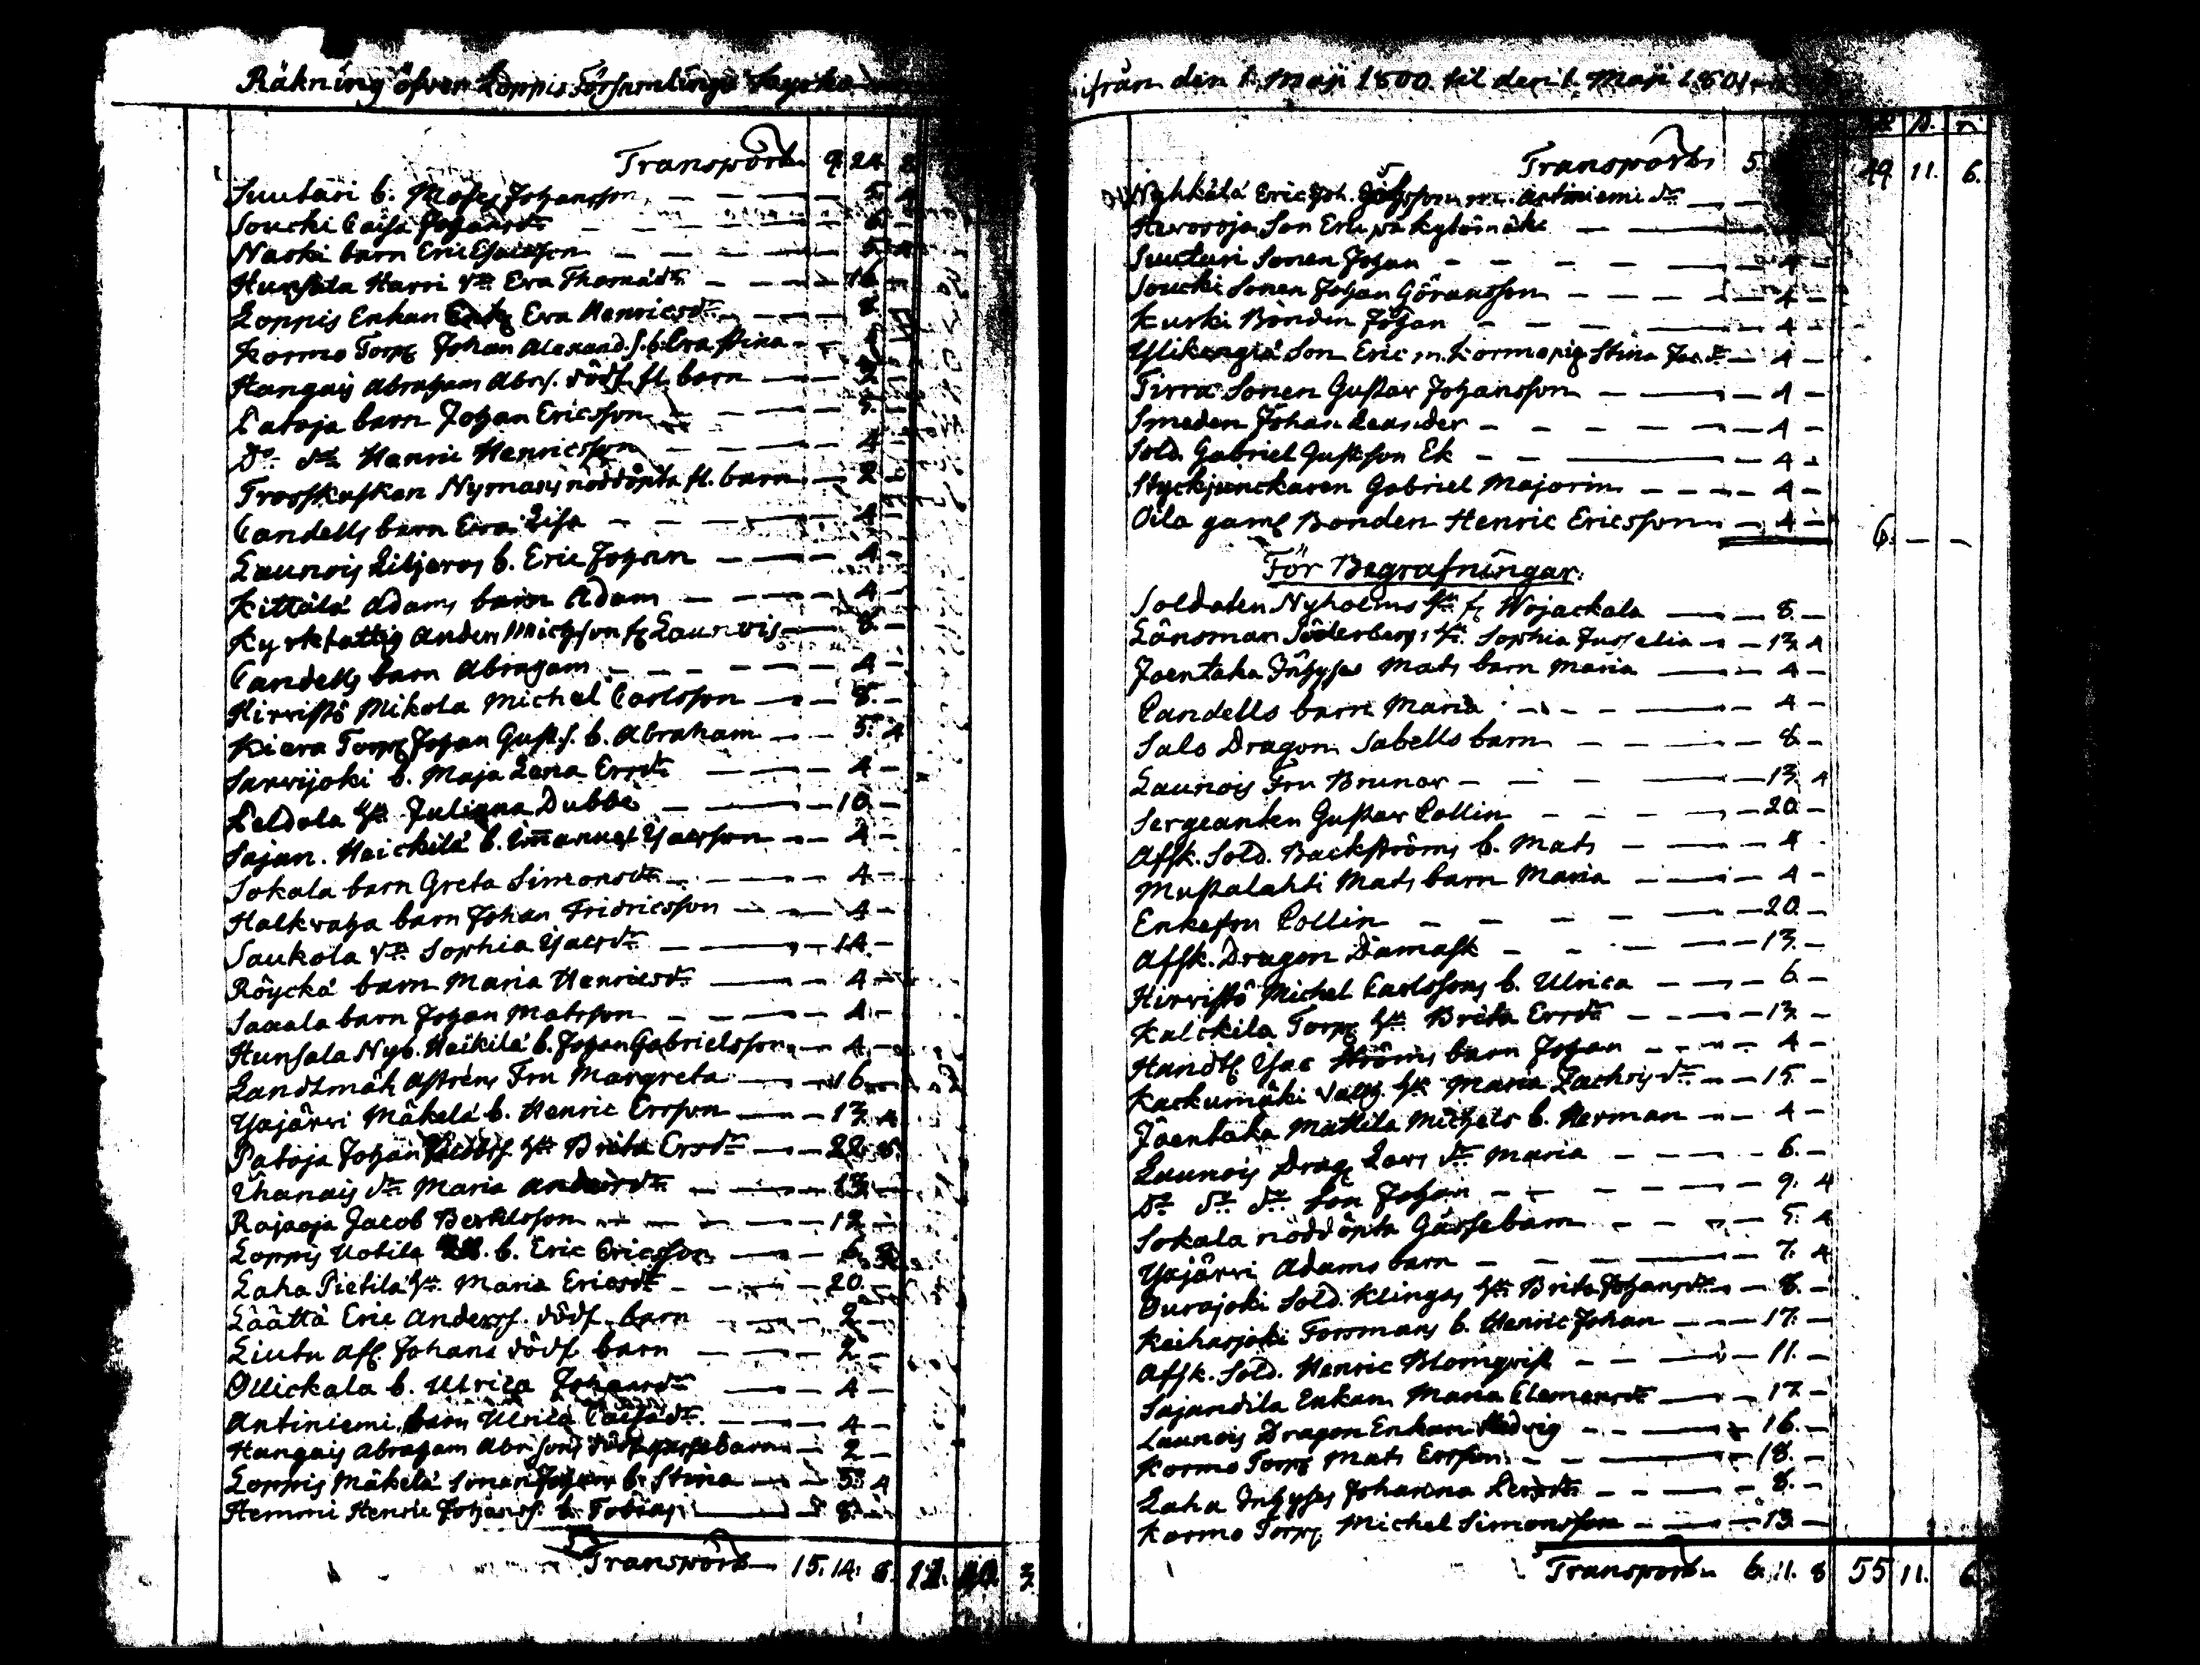 Räkning öfver Loppis Församlings Kyrka
Transport 9. 24. 8
Suutari b. Moses Johansson — 5. 4
Soucki Caisa Johansdr — 6. –
Naski barn Eric Isacsson — 5. 4
Hunsala Harri dr. Eva Thomædr — 16. –
Loppis Enkan Eva Henricsdr — 8.
Kormo Torp. Johan Alexand. s. b. Eva Stina —
Hangais Abraham Abrs. dödf. fl. barn — 2 –
Patoja barn Johan Ericsson —
Do do Henric Henricsson — 4 –
Trosskusken Nymans nöddöpta fl. barn — 2 –
Candells barn Eva Lisa — 4 –
Launois Liljeros b. Eric Johan — 4 –
Kittälä Adams barn Adam — 4 –
Kyrkfattig Anders Michsson fr. Launois — 8. –
Candells barn Abraham — 4 –
Hirvistö Mikola Michel Carlsson — 8. –
Kiera Torp. Johan Gusts. b. Abraham — 5. 4
Sarvijoki b. Maja Lena Ersdr — 4 –
Peldola hu. Juliana Dubbe — 10. –
Sajan. Heickilä b. Emanuel Isacsson — 4 –
Sokala barn Greta Simonsdr — 4 –
Halkvaha barn Johan Fridricsson — 4 –
Saukola dr. Sophia Isacsdr — 14. –
Röyckä barn Maria Henricsdr — 4 –
Saaala barn Johan Matsson — 4 –
Hunsala Nyb. Heikilä b. Johan Gabrielsson — 4 –
Landtmät. Astréns Fru Margreta — 16. –
Yajärvi Mäkelä b. Henric Ersson — 13. 4
Patoja Johan Jacobs. hu. Brita Ersdr — 22. 8.
Uhanais dr. Maria Andersdr — 13. –
Rajaoja Jacob Bertelsson — 12 –
Loppis Uotila b. Eric Ericsson — 6.
Laha Pietilä hu. Maria Ericsdr — 20. –
Läättä Eric Anderss. dödf. barn — 2 –
Liutu afl. Johans dödf. barn — 2 –
Ollickala b. Ulrica Johansdr — 4 –
Antiniemi barn Ulrica Caisadr. — 4 –
Hangais Abraham Abrsons dödf. gossebarn — 2 –
Loppis Mäkelä Sonen Johans b. Stina — 5. 4
Hemmi Henric Johanss. b. Tobias — 8. –
Transport 15. 14. 8. 12. 20. 3.
ifrån den 1. Maji 1800 til den 1. Maji 1801.
Transport 5. 49. 11. 6.
Nyhkälä Eric Joh. Johsson m. Antiniemi dr —
Hevosoja Son Eric på Kytömäki —
Suutari Sonen Johan — 4 –
Soucki Sonen Johan Göransson — 4 –
Kurki Bonden Johan — 4 –
Ylikangiä Son Eric m. Kormo pig Stina Jac. dr — 4 –
Tirra Sonen Gustav Johansson — 4 –
Smeden Johan Leander — 4 –
Sold. Gabriel Gustsson Ek — 4 –
Styckjunckaren Gabriel Majorin — 4 –
Oila gaml. Bonden Henric Ericsson — 4 – 6. — —
För Begrafningar.
Soldaten Nyholms hu. fr. Wojackala — 8. –
Länsman Söderbergs hu. Sophia Jusselia — 13. 4
Joentaka Inhyses Mats barn Maria — 4 –
Candells barn Maria — 4 –
Salo Dragon Sabells barn — 8. –
Launois Fru Bruner — 13. 4
Sergeanten Gustav Collin — 20. –
Afsk. Sold. Backströms b. Mats — 4
Mustalahti Mats barn Maria — 4 –
Enkefru Collin — 20. –
Afsk. Dragon Damask — 13. –
Hirvistö Michel Carlssons b. Ulrica — 6. –
Kalckila Torp. hu. Brita Ersdr — 13. –
Handtl. Isac Ströms barn Johan — 4 –
Kackumäki hu. Maria Zachrisdr — 15. –
Joentaka Mattila Michels b. Herman — 4 –
Launois Drag. Lars dr. Maria — 6. –
Do do do Son Johan — 9. 4
Sokala nöddöpta Gåssebarn — 5. 4
Yajärvi Adams barn — 7. 4
Ourajoki Sold. Klingas hu. Brita Johansdr — 8. –
Keiharjoki Forsmans b. Henric Johan — 17. –
Afsk. Sold. Henric Blomqvist — 11. –
Sajandila Enkan Maria Clemensdr — 17. –
Launois Dragon Enkan Hedvig — 16. –
Kormo Torp. Mats Ersson — 18. –
Laha Inhyses Johanna Lersdr — 8. –
Kormo Torp. Michel Simonsson — 13. –
Transport 6. 11. 8 55 11. 6